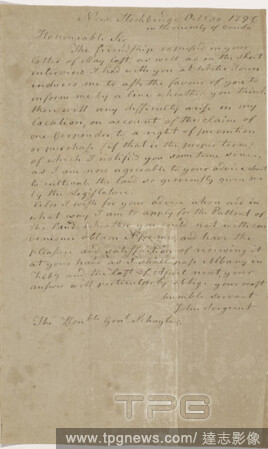 New Stockbridge Oct. 20. 1796
in the vicinity of Oneida
Honourable Sir
The friendship expressed in your
letter of May last, as well as in the short
interview I had with you at
induces me to ask the favour of you to
inform me by a line whether you think
there will any difficulty arise on my
location, on account of the claim of
one to a right of
or purchase (if that is the proper term)
of which I notified you some time since,
as I am now agreeable to your advice about
to cultivate the land so generously given me
by the Legislature.
Also I wish for your advice when and in
what way I am to apply for the Pattent of
the land, whether you could not with con
venience obtain it for me, and have the
pleasure and satisfaction of receiving it
at your hand as I shall pass Albany in
Feby and the last of
answer will particularly oblige your most
humble servant
John Sergeant
The Honble Genl. Schuyler
TPG
www.tpgnews.com/達志影像